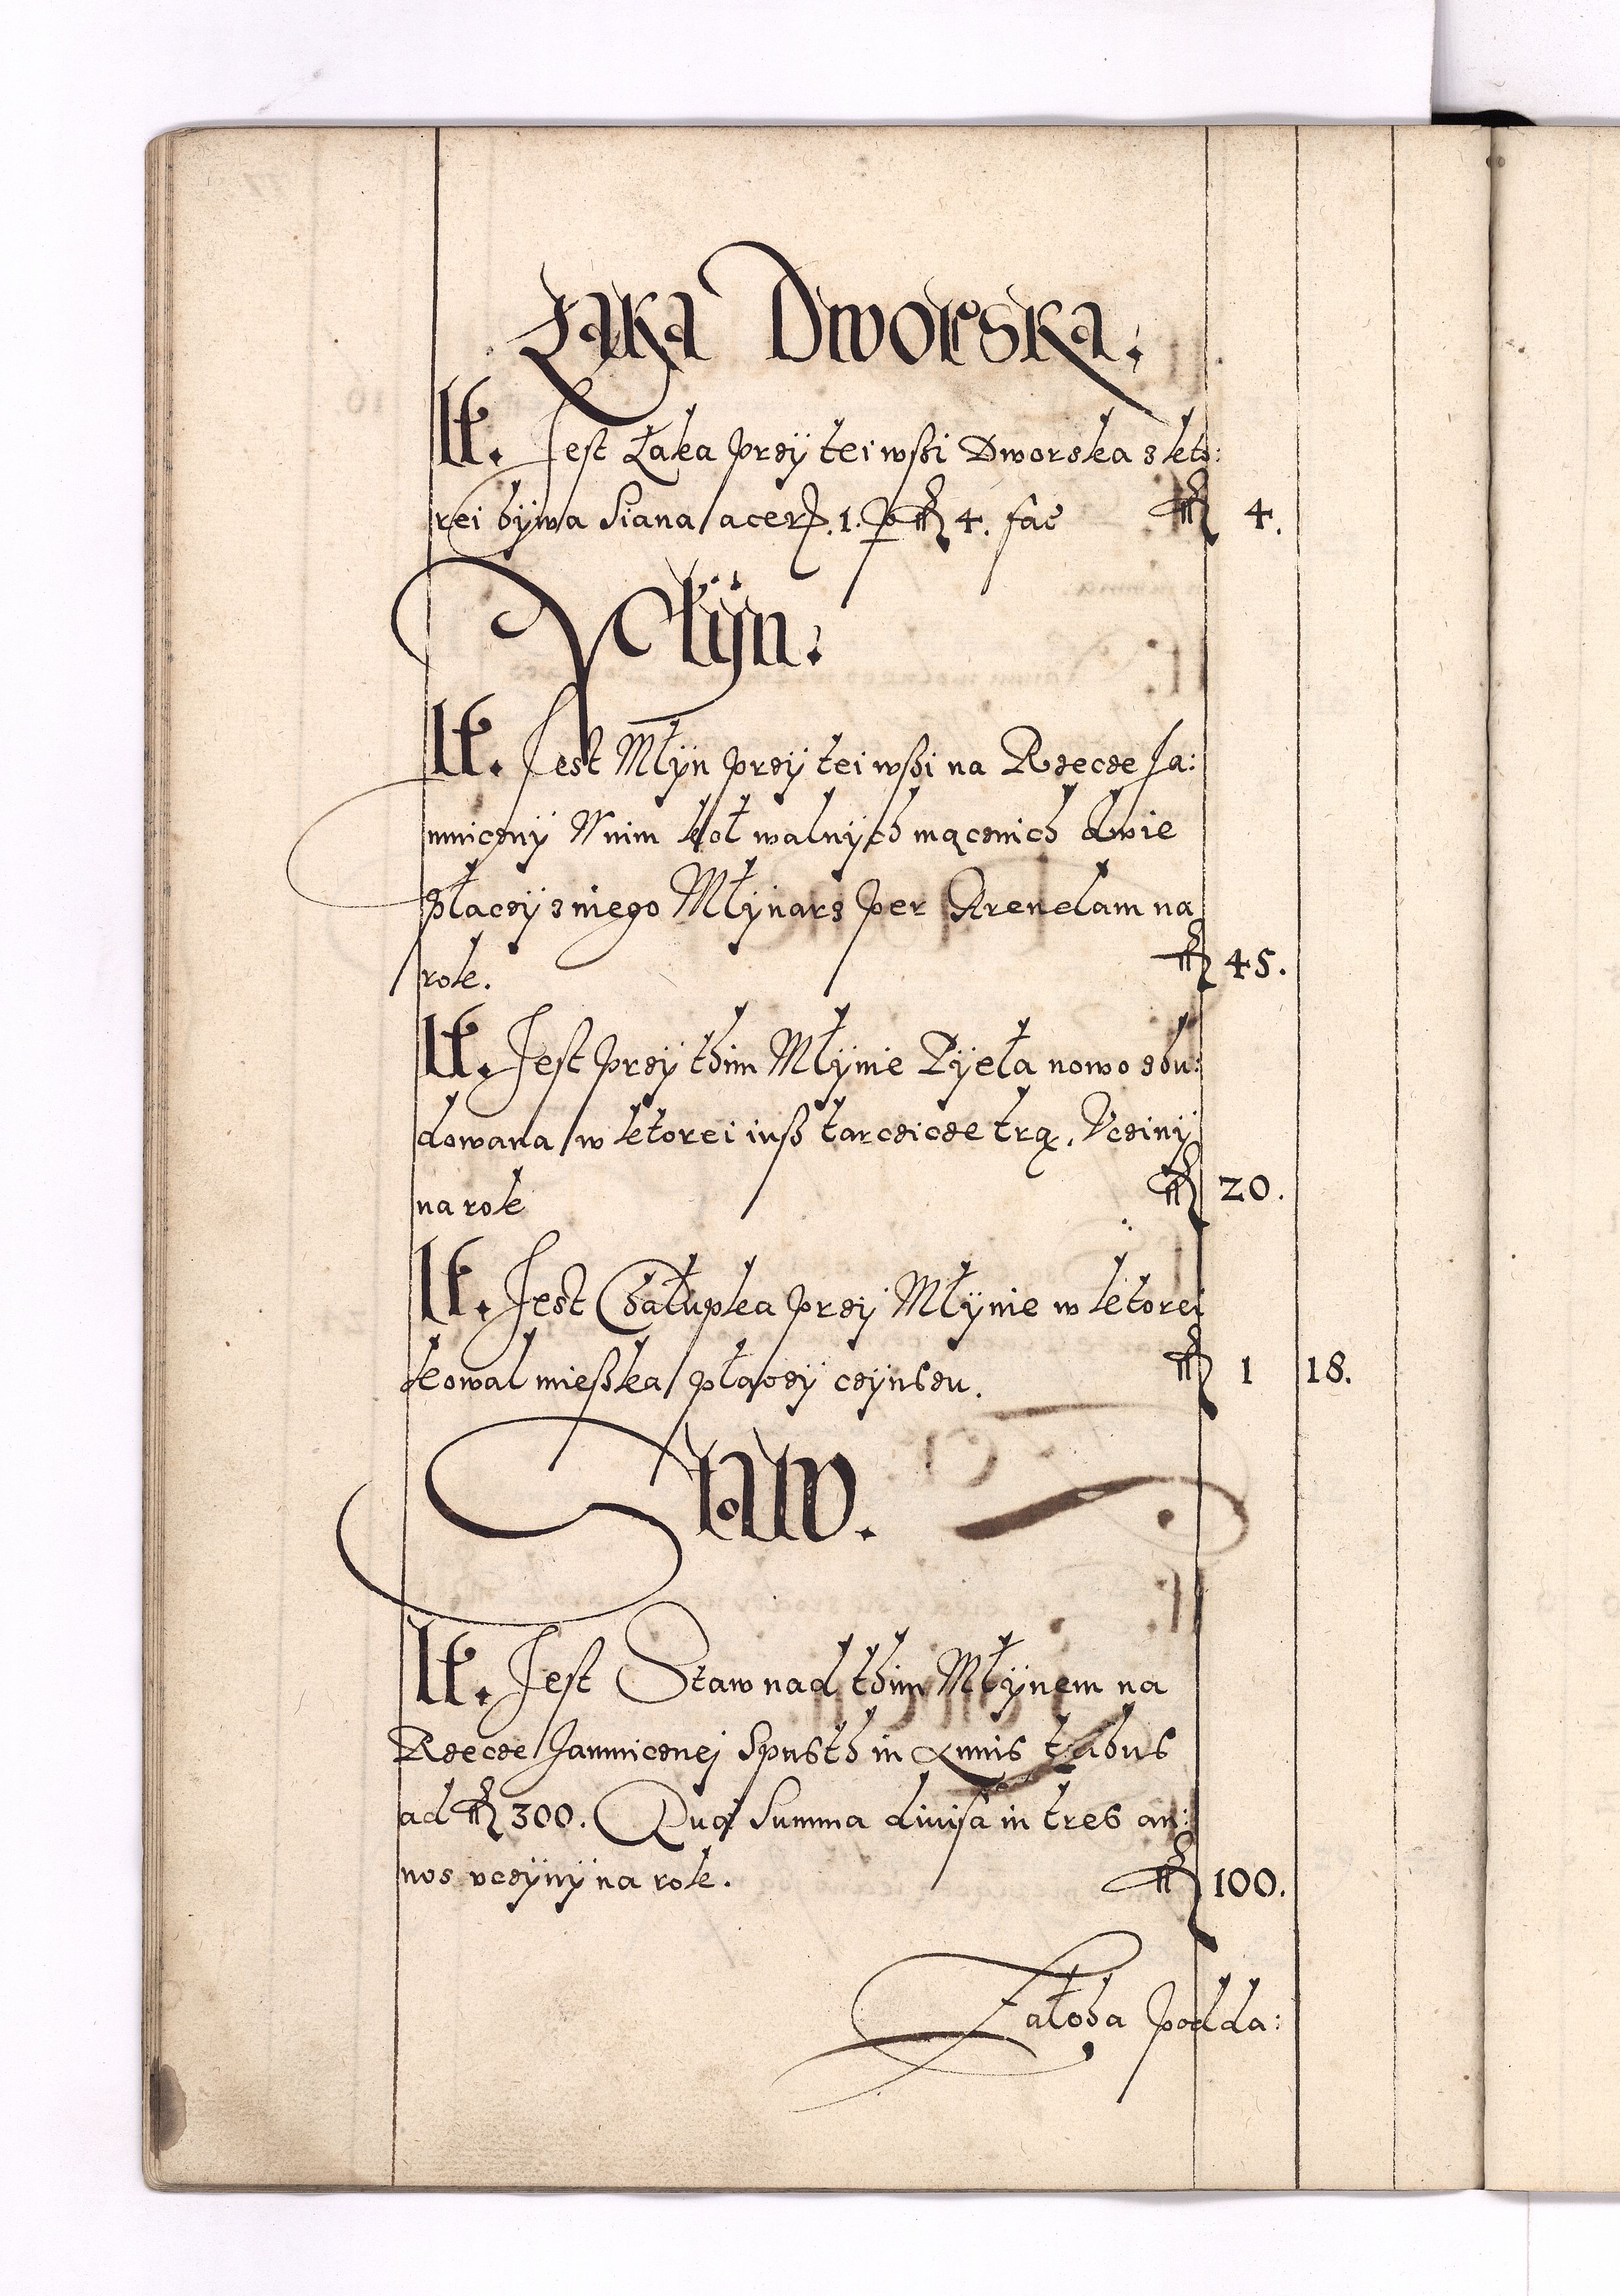 Łąka Dworska.
It. Jest Łąka przÿ tei wßi Dworska z kto:
rei bÿwa Siana acerv. 1. po fl 4. fac fl 4.
Młÿn.
It. Jest Młÿn przÿ tei wßi na Rzecze Ja:
mnicznÿ W nim koł walnÿch mącznich dwie
płaczÿ z niego Młÿnarz per Arendam na
rok. fl 45.
It. Jest przÿ thim Młÿnie Pyeła nowo zbu:
dowana w ktorei iuß tarczicze trą. Vczinÿ
na rok fl 20.
It. Jest Chałupka przÿ Młÿnie w ktorei
kowal mießka płaczÿ czÿnszu. fl 1 18.
Staw.
It. Jest Staw nad thim Młÿnem na
Rzecze Jamnicznej Spusth in Annis tribus
ad fl 300. Quæ Summa divisa in tres an:
nos vczÿnÿ na rok. fl 100.
Załoha podda: